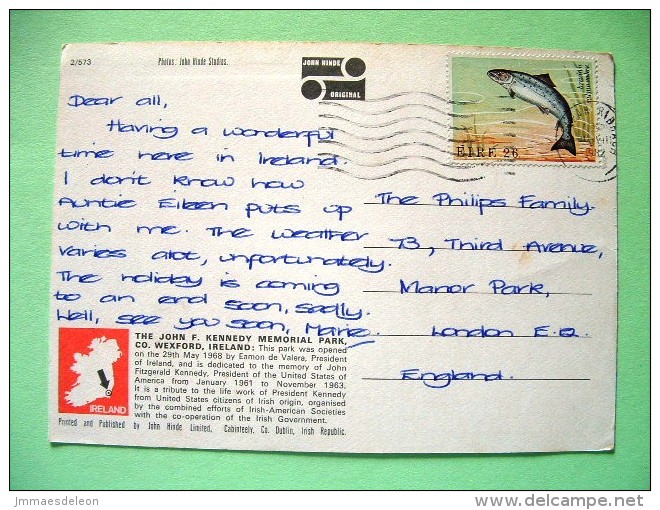 2/573
Photos: John Hinde Studios.
JOHN HINDE
ORIGINAL
EIRE 26
Dear all,
Having a wonderful
time here in Ireland.
I don't know how
Auntie Eileen puts up
with me. The weather
varies alot, unfortunately.
The holiday is coming
to an end soon, sadly.
Well, see you soon, Marie
The Philips Family.
73, Third Avenue,
Manor Park,
London E.12.
England.
THE JOHN F. KENNEDY MEMORIAL PARK,
CO. WEXFORD, IRELAND: This park was opened
on the 29th May 1968 by Eamon de Valera, President
of Ireland, and is dedicated to the memory of John
Fitzgerald Kennedy, President of the United States of
America from January 1961 to November 1963.
It is a tribute to the life work of President Kennedy
from United States citizens of Irish origin, organised
by the combined efforts of Irish-American Societies
with the co-operation of the Irish Government.
IRELAND
Printed and Published by John Hinde Limited, Cabinteely, Co. Dublin, Irish Republic.
jmmaesdeleon
delcampe.net